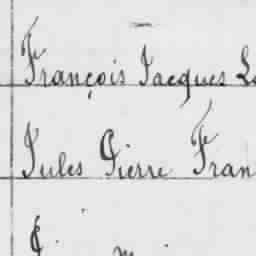 François Jacques
Jules Pierre Fran